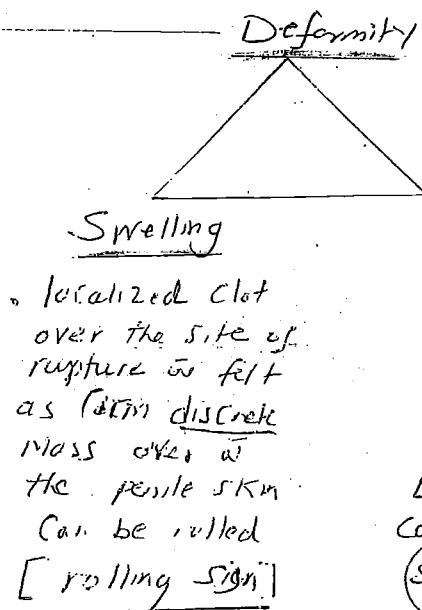 Deformity
Swelling
• localized Clot
over the site of
rupture is felt
as firm discrete
Mass over
the penile skin
Can be rolled
[ rolling sign ]